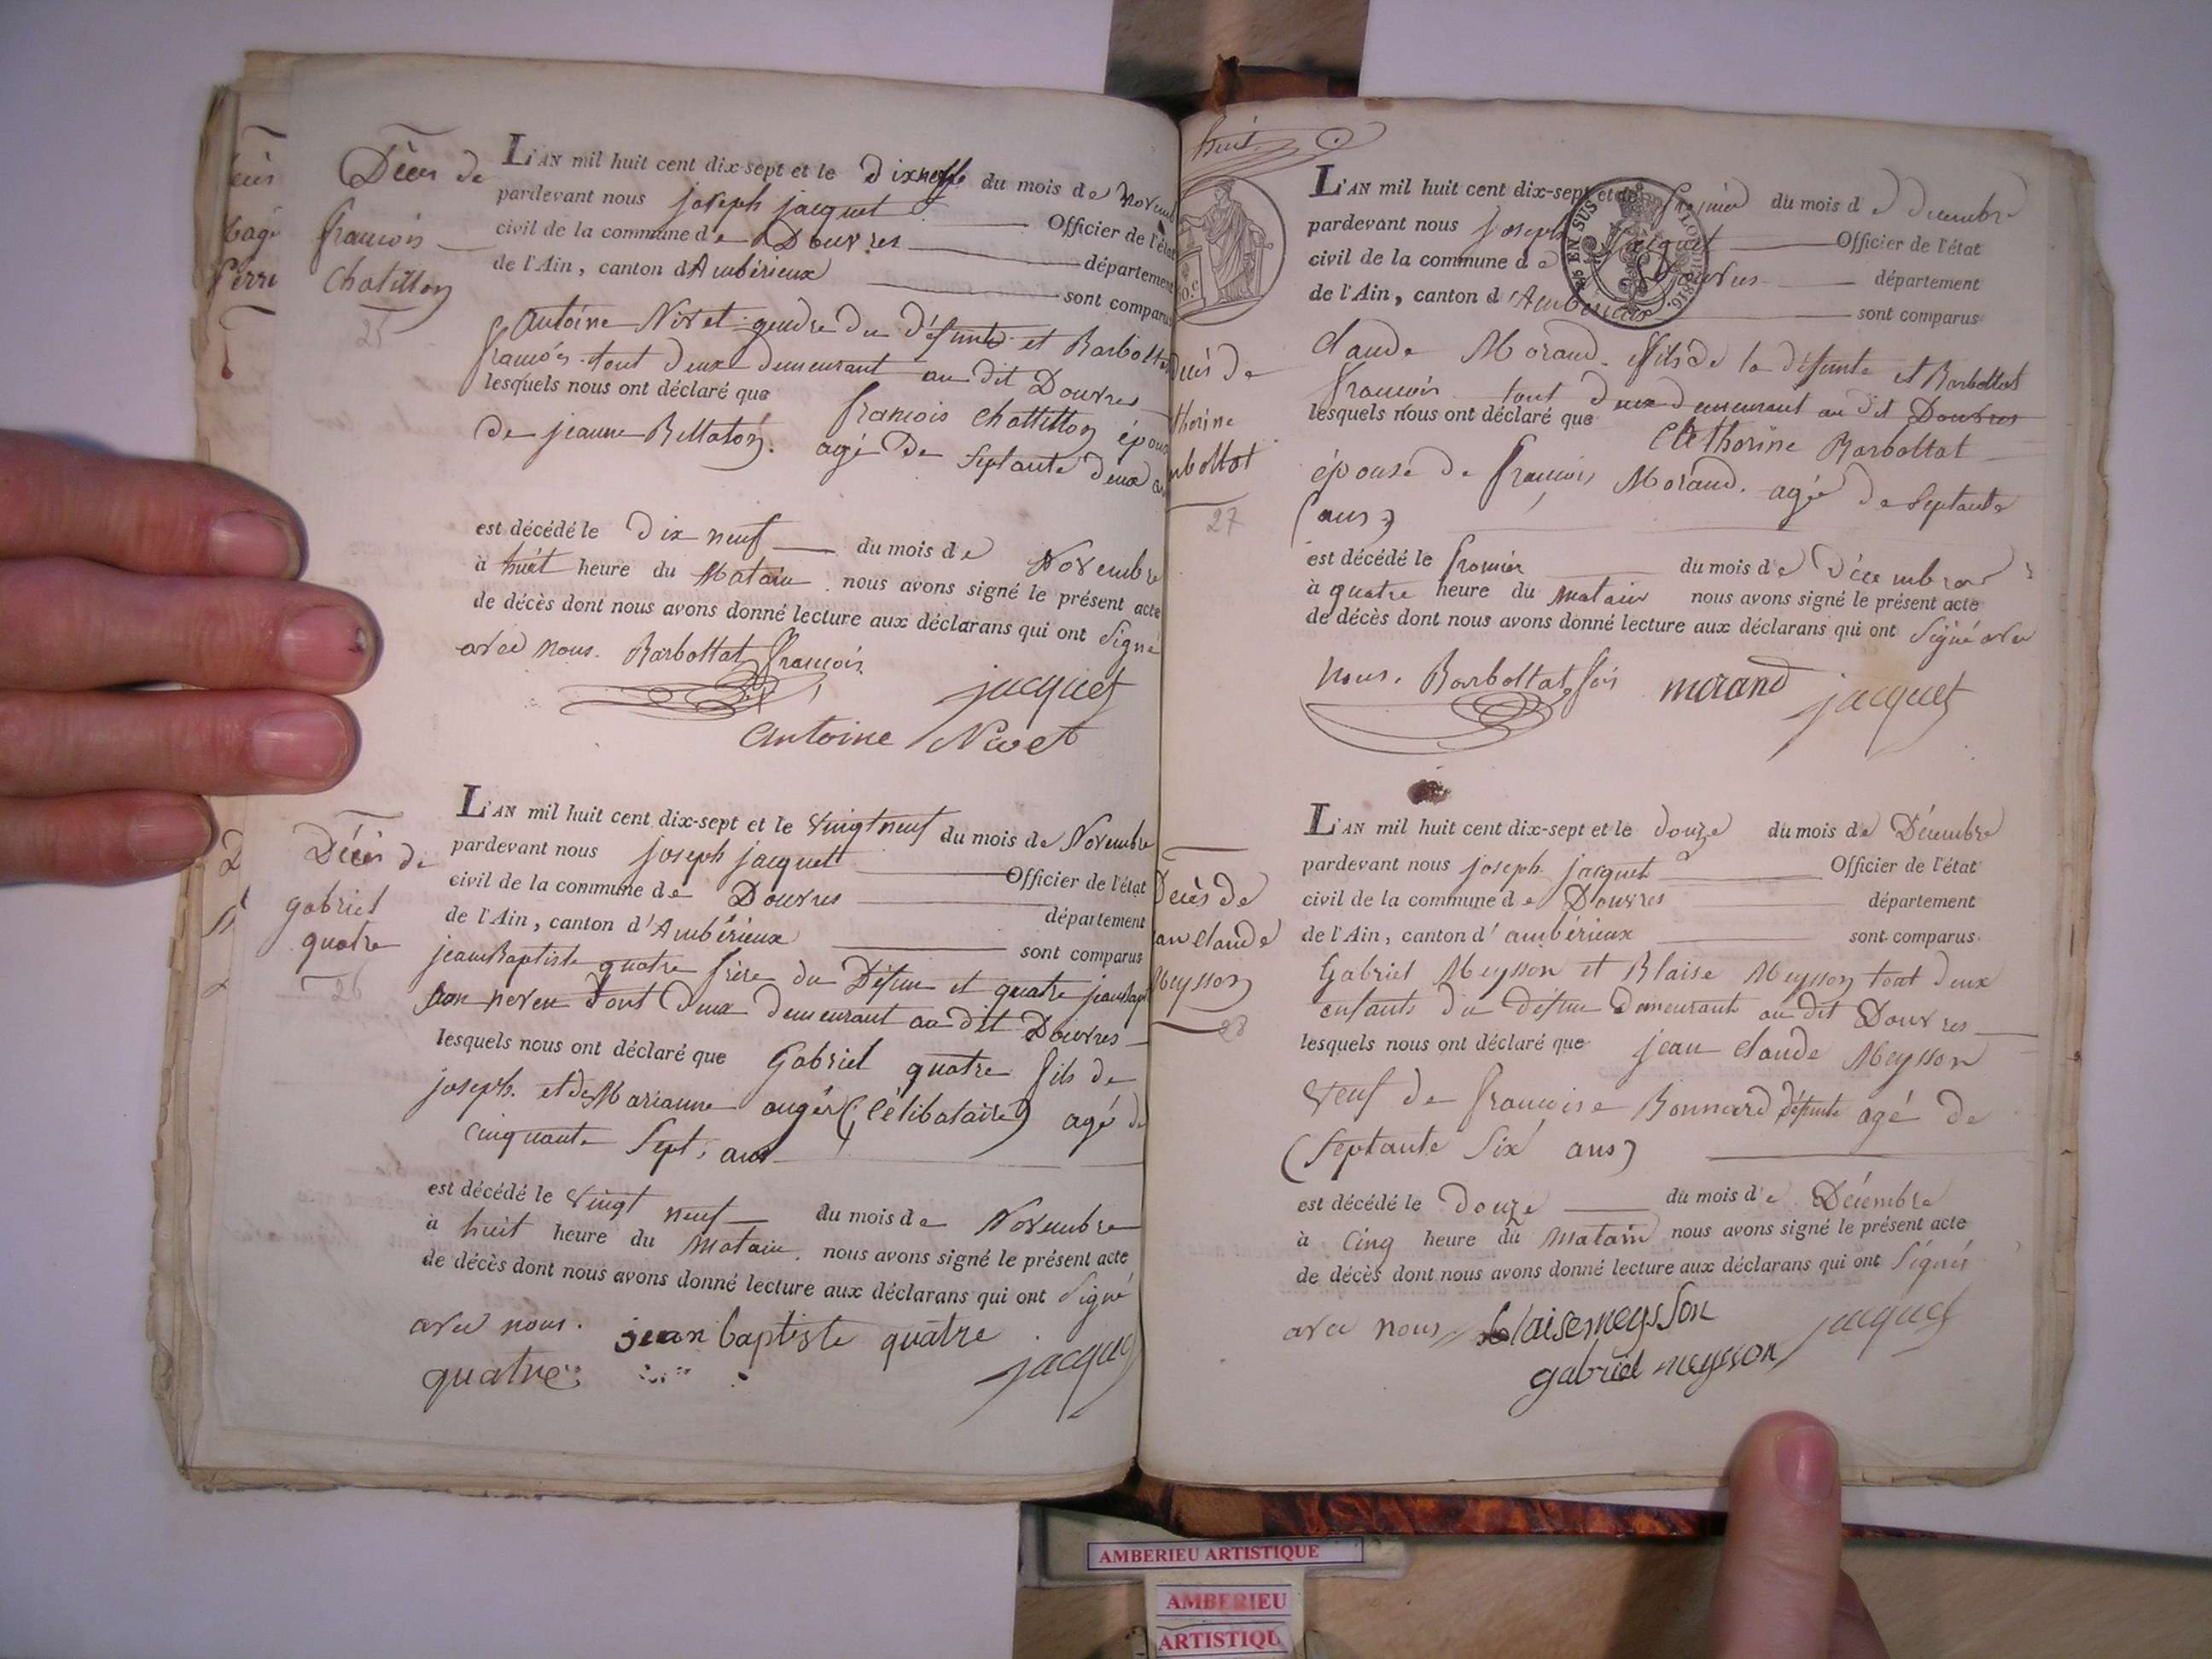 Décès de
françois
Chatillon
25
L'AN mil huit cent dix-sept et le dixneuf du mois de Novemb
pardevant nous joseph jacquet Officier de l'état
civil de la commune de Douvres département
de l'Ain, canton d'Ambérieux sont comparus
Antoine Nivet gendre du défunt et Barbottat
françois tout deux demeurant au dit Douvres
lesquels nous ont déclaré que françois Chattillon époux
de jeanne Bellaton. agé de septante deux ans
est décédé le dix neuf du mois de Novembre
à huit heure du Matain nous avons signé le présent acte
de décès dont nous avons donné lecture aux déclarans qui ont signé
avec nous. Barbottat françois
jacquet
antoine Nivet
Décès de
gabriel
quatre
26
L'AN mil huit cent dix-sept et le vingt neuf du mois de Novembre
pardevant nous joseph jacquett Officier de l'état
civil de la commune de Douvres département
de l'Ain, canton d'Ambérieux sont comparus
jean Baptiste quatre frère du défun et quatre jean Bapt
son neveu tout deux demeurant au dit Douvres
lesquels nous ont déclaré que Gabriel quatre fils de
joseph. et de Marianne augér (célibataire) agé de
cinquante sept, ans
est décédé le vingt neuf du mois de Novembre
à huit heure du Matain. nous avons signé le présent acte
de décès dont nous avons donné lecture aux déclarans qui ont signé
avec nous. jean baptiste quatre
quatre jacque
huit
L'AN mil huit cent dix-sept et le premier du mois de décembre
pardevant nous joseph jacquet Officier de l'état
civil de la commune de Douvres département
de l'Ain, canton d'Ambérieux sont comparus
EN SUS
1816
décès de
thorine
rbottat
27
claude Morand. fils de la défunte et Barbottat
françois tout deux demeurant au dit Douvres
lesquels nous ont déclaré que Cathorine Barbottat
épouse de françois Morand. agée de septante
(ans)
est décédé le premier du mois de Décembre
à quatre heure du matain nous avons signé le présent acte
de décès dont nous avons donné lecture aux déclarans qui ont signé avec
nous. Barbottat fois morand jacquet
Décès de
jean claude
Meysson
28
L'AN mil huit cent dix-sept et le douze du mois de Décembre
pardevant nous joseph jacquet Officier de l'état
civil de la commune de Douvres département
de l'Ain, canton d'ambérieux sont comparus
Gabriel Meysson et Blaise Meysson tout deux
enfants du défun demeurant au dit Douvres
lesquels nous ont déclaré que jean claude Meysson
veuf de françoise Bonnard défunte agé de
(septante six ans)
est décédé le douze du mois de Décembre
à cinq heure du matain nous avons signé le présent acte
de décès dont nous avons donné lecture aux déclarans qui ont signés
avec nous blaise meysson jacquet
gabriel meysson
AMBERIEU ARTISTIQUE
AMBERIEU
ARTISTIQU